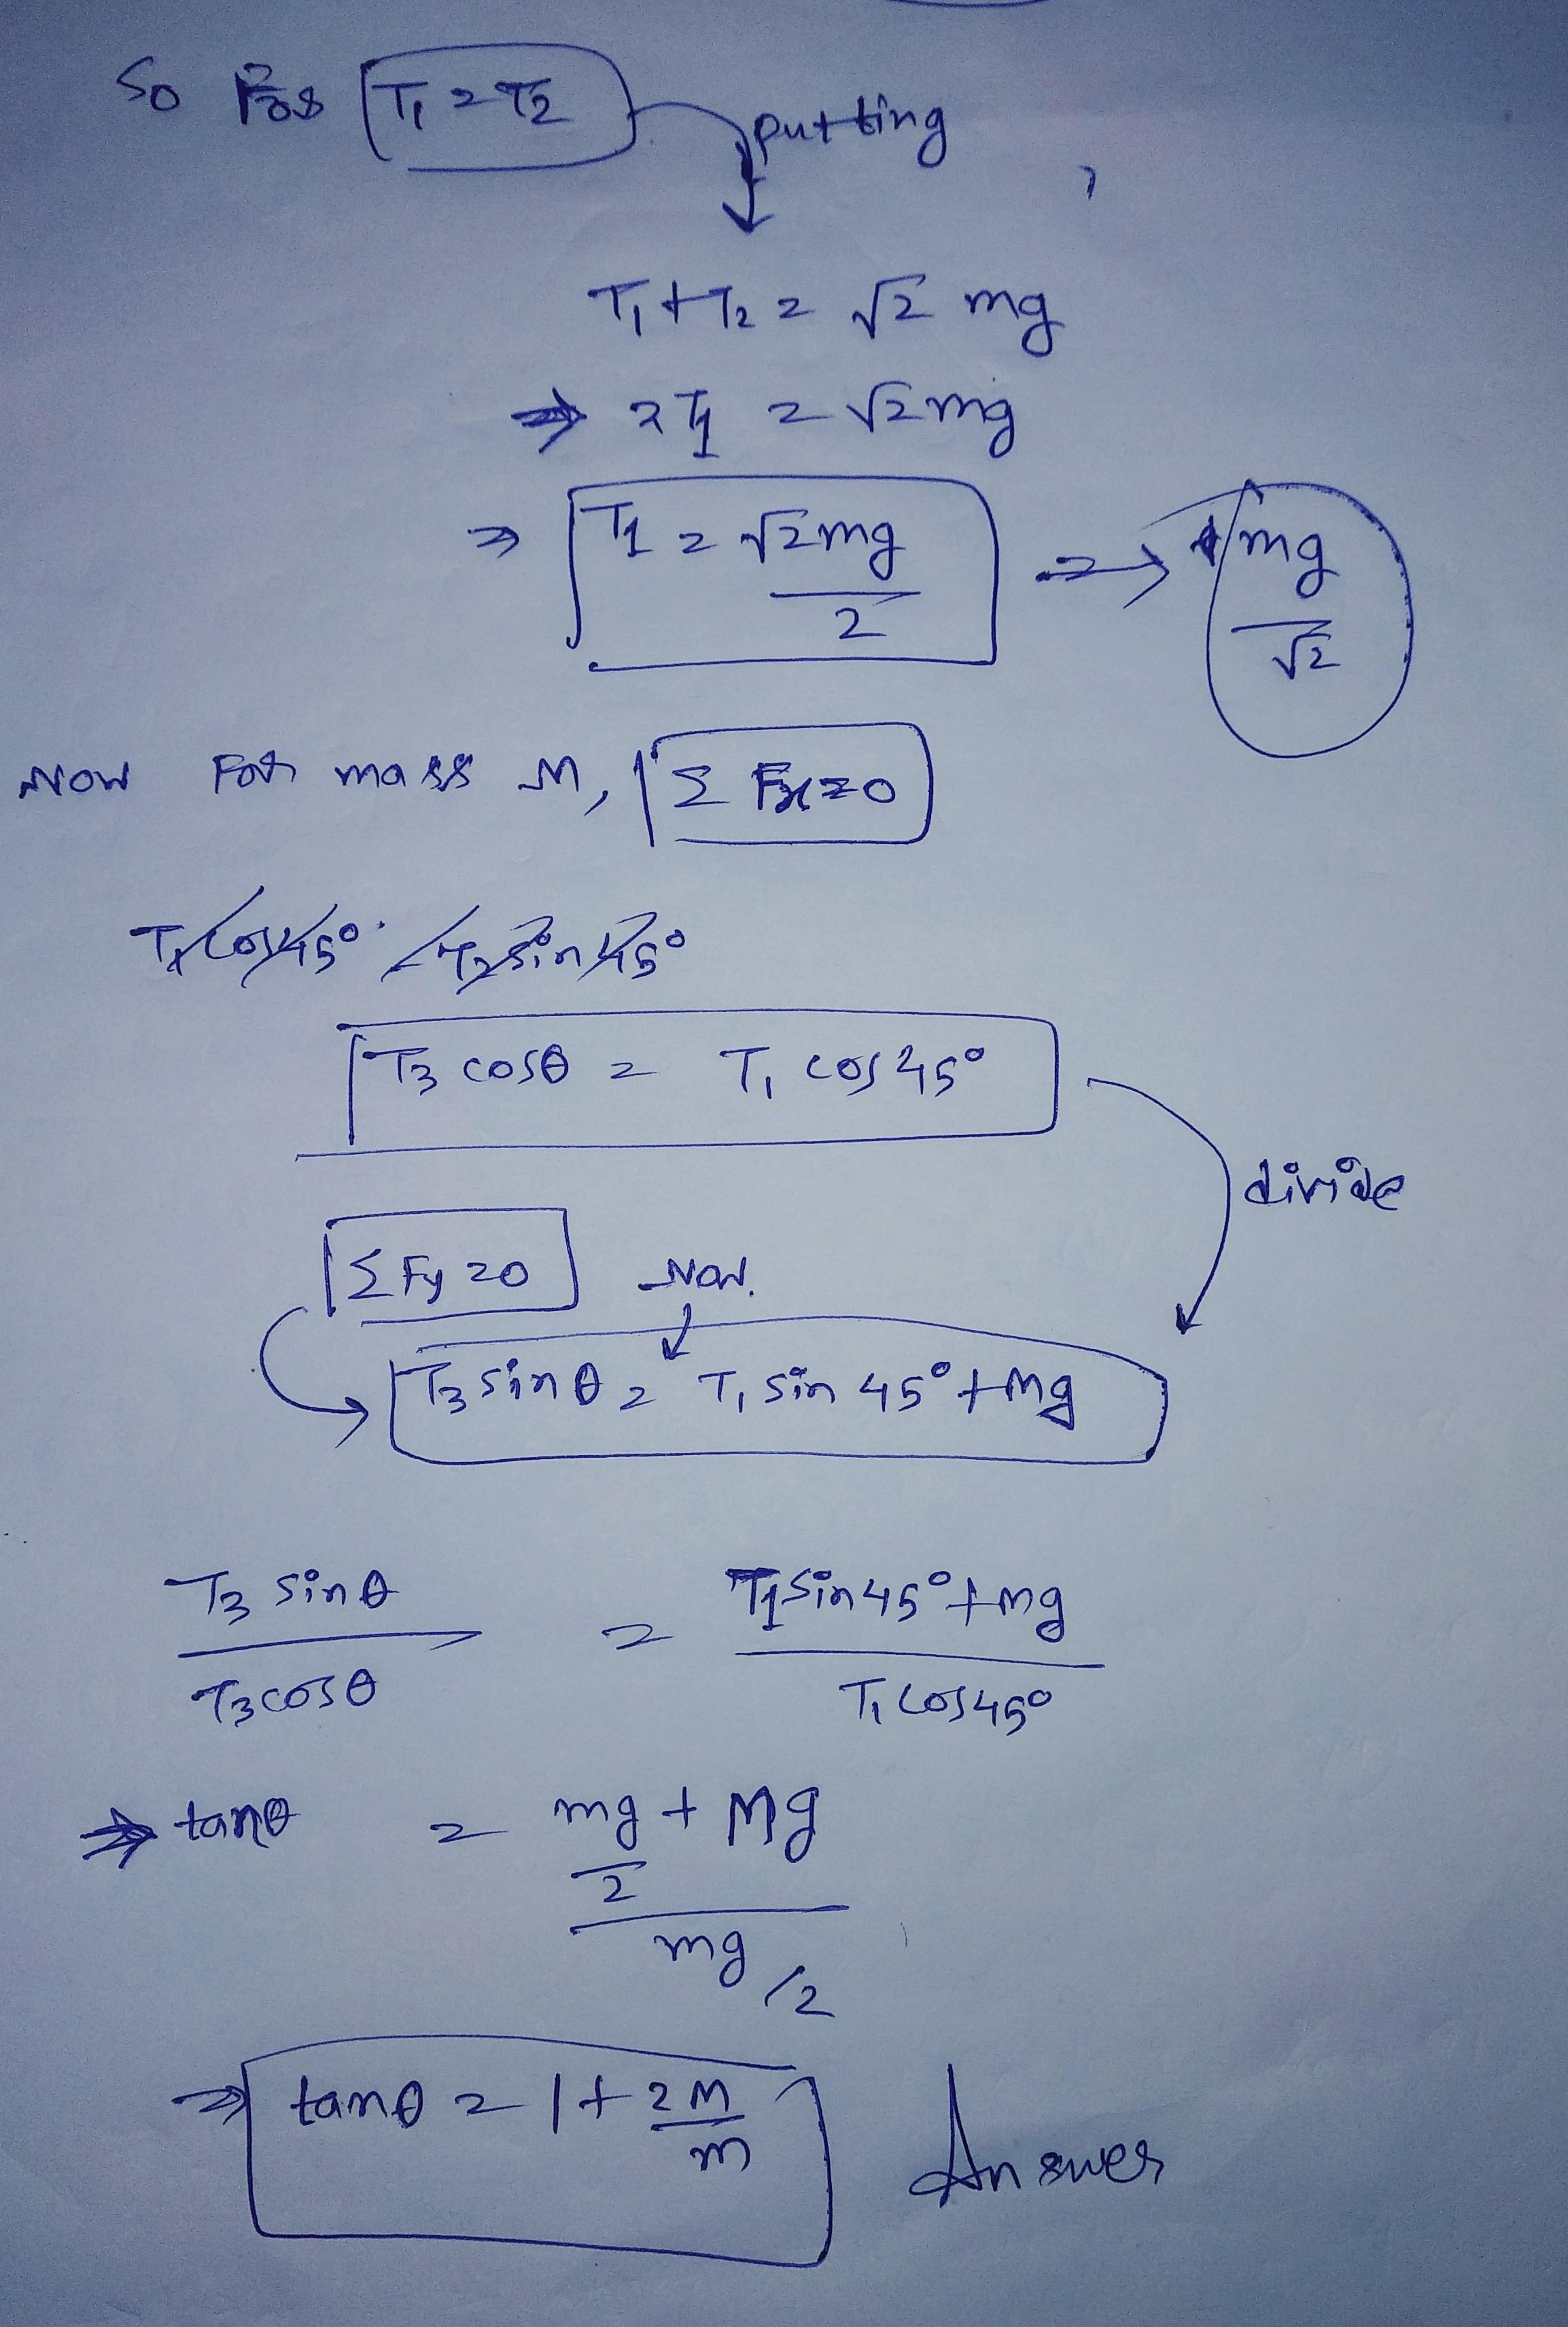 So For T₁ = T₂
putting
T₁ + T₂ = √2 mg
⇒ 2T₁ = √2 mg
⇒ T₁ = √2mg/2 ⇒ mg/√2
Now For mass M, Σ Fx = 0
T₃ cosθ = T₁ cos 45°
divide
Σ Fy = 0 Now.
T₃ sinθ = T₁ sin 45° + Mg
T₃ sinθ/T₃ cosθ = T₁ sin 45° + mg/T₁ cos 45°
⇒ tanθ = mg/2 + Mg/mg/2
⇒ tanθ = 1 + 2M/m Answer